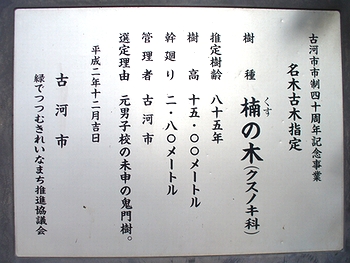 古河市市制四十周年記念事業
名木古木指定
樹種 楠の木(クスノキ科)
くす
推定樹齢 八十五年
樹高 十五・〇〇メートル
幹廻り 二・八〇メートル
管理者 古河市
選定理由 元男子校の未申の鬼門樹。
平成二年十二月吉日
古河市
緑でつつむきれいなまち推進協議会